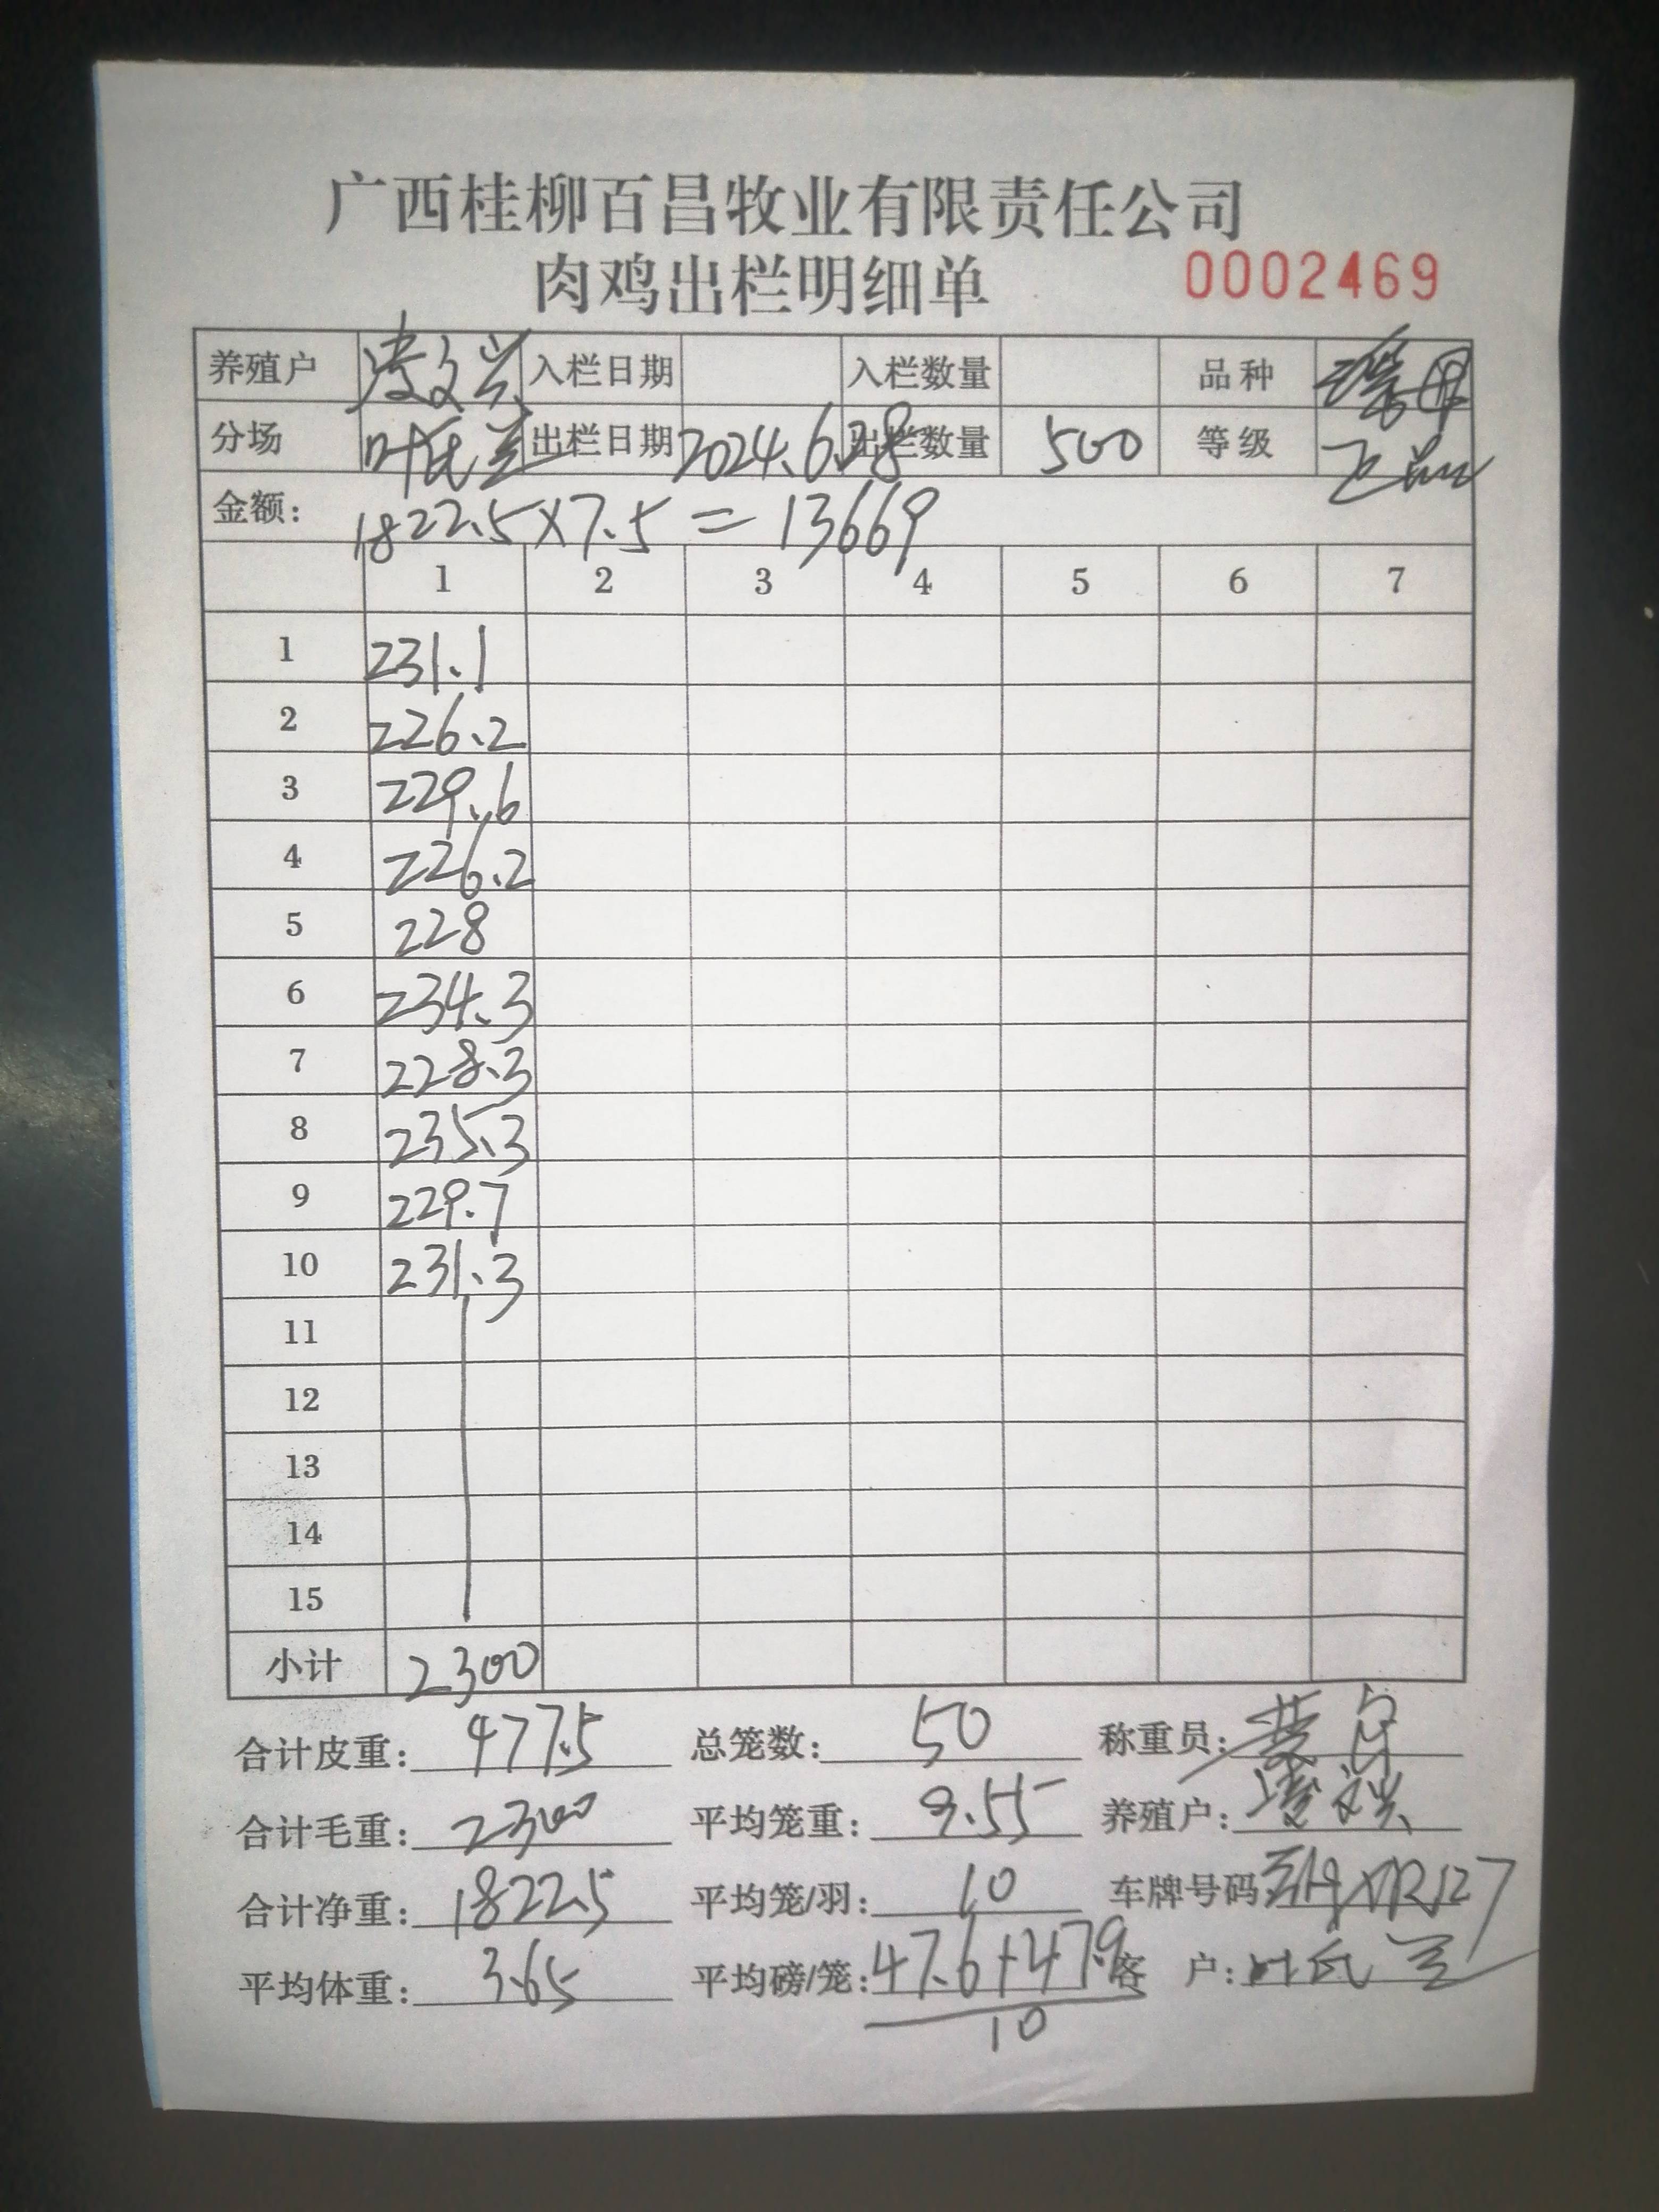 广西桂柳百昌牧业有限责任公司
肉鸡出栏明细单 0002469
养殖户 凌文兴 入栏日期 入栏数量 品种
分场 叶氏兰 出栏日期 2024.6.28 出栏数量 500 等级
金额: 1822.5×7.5=13669
1 2 3 4 5 6 7
1 231.1
2 226.2
3 229.6
4 226.2
5 228
6 234.3
7 228.3
8 235.3
9 229.7
10 231.3
11
12
13
14
15
小计 2300
合计皮重: 477.5 总笼数: 50 称重员:
合计毛重: 2300 平均笼重: 9.55 养殖户: 凌文兴
合计净重: 1822.5 平均笼/羽: 10 车牌号码:
平均体重: 3.65 平均磅/笼: 47.6+47.9 客 户: 叶氏兰
10